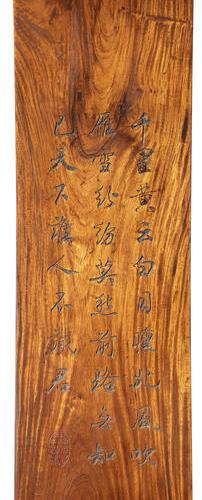 千里黄云白日曛北風吹
雁雪紛紛莫愁前路無知
己天下誰人不識君